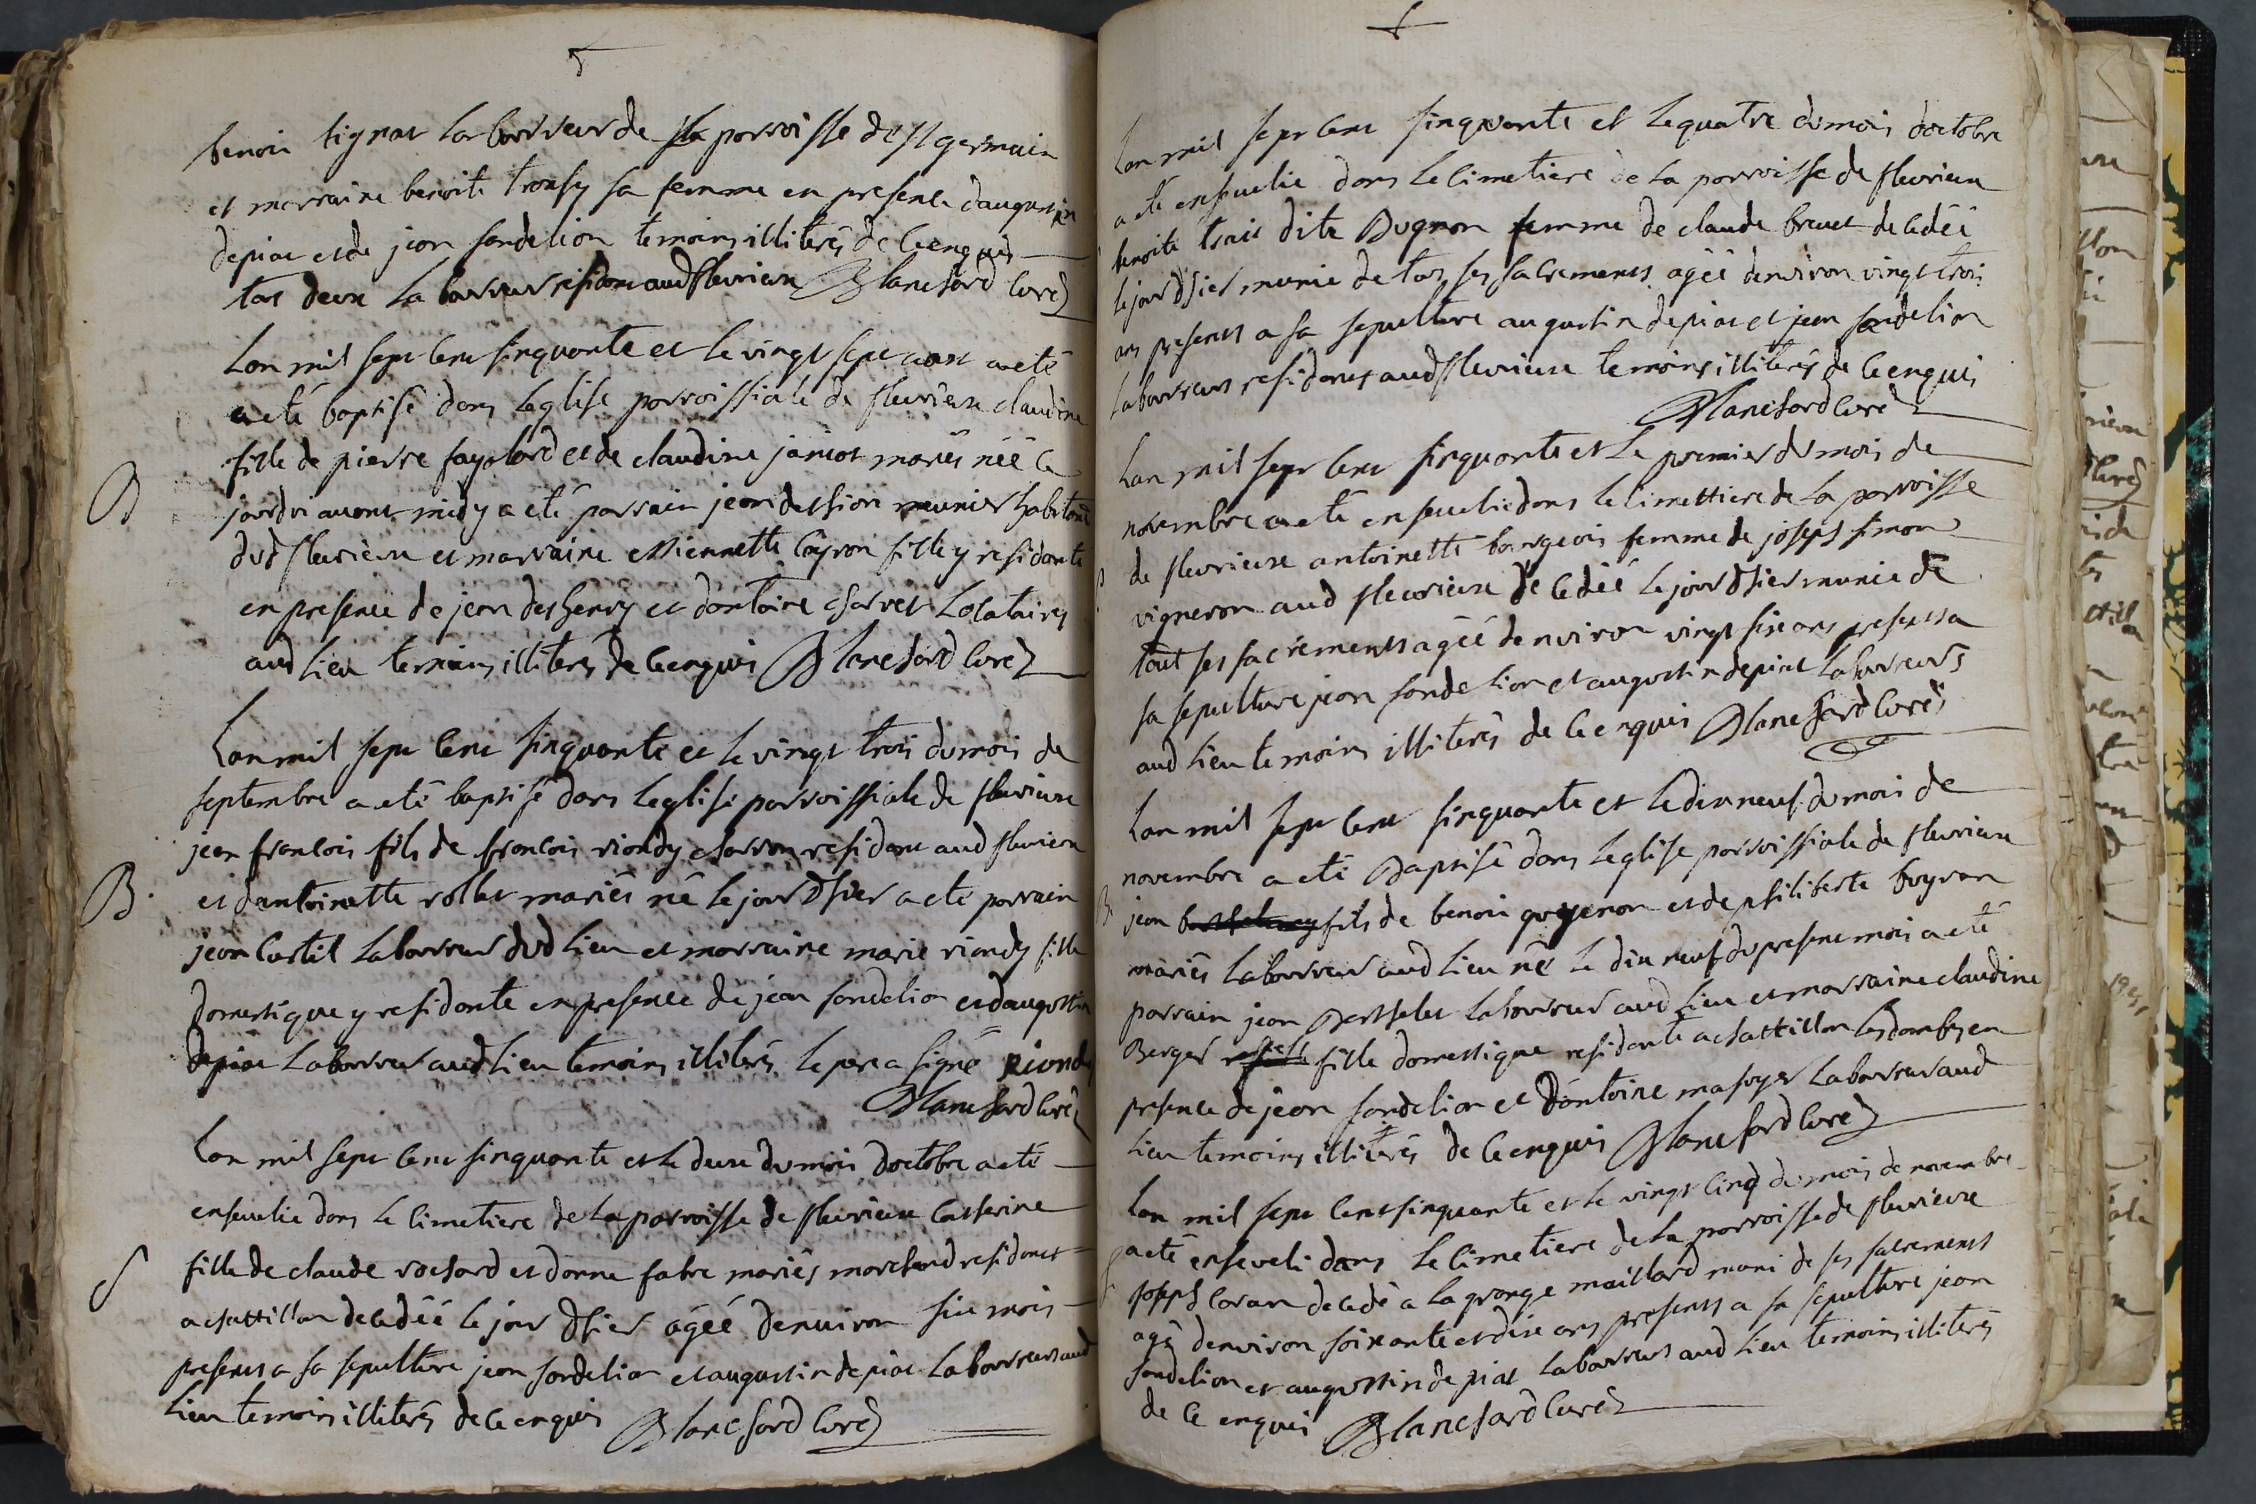 benoit tignat laboureur de la parroisse de st germain
et marraine benoite tronfy sa femme en presence daugustin
depiat et de jean fondelion temoins illiterés de ce enquis
tous deux laboureur residans aud fleurieux Blanchard curé
Lan mil sept cent sinquante et le vingt sept aoust a eté
a eté baptisé dans leglise parroissiale de fleurieux claudine
fille de pierre fayolard et de claudine janiot mariés néé ce
jourdui avant midy a eté parrain jean dession meunier habitant
B
dud fleurieux et marraine ettiennette cayron fille y residante
en presence de jean deshenry et dantoine charvet locataires
aud lieu temoins illiterés de ce enquis Blanchard curé
Lan mil sept cent sinquante et le vingt trois du mois de
septembre a eté baptisé dans leglise parroissiale de fleurieux
jean francois fils de francois riondy charron residant aud fleurieux
B.
et dantoinette rollet mariés né le jour dhier a eté parrain
jean curtil laboureur dud lieu et marraine marie riondy fille
domestique y residante en presence de jean fondelion et daugustin
depiat laboureur aud lieu temoins illiterés le pere a signé Riondy
Blanchard curé
Lan mil sept cent sinquante et le deux du mois doctobre a eté
ensevelie dans le cimetiere de la parroisse de fleurieux catherine
fille de claude rochard et danne fabre mariés marchand residants
S
a chattillon decedéé le jour dhier agéé denviron six mois
presents a sa sepulture jean fondelion et augustin depiat laboureurs aud
lieu temoins illiterés de ce enquis Blanchard curé
Lan mil sept cent sinquante et le quatre du mois doctobre
a eté ensevelie dans le cimetiere de la parroisse de fleurieux
benoite trait dite Dugnon femme de claude brevet decedéé
le jour dhier munie de tous ses sacrements agéé denviron vingt trois
ans presents a sa sepulture augustin depiat et jean fondelion
laboureurs residants aud fleurieux temoins illiterés de ce enquis
Blanchard curé
Lan mil sept cent sinquante et le premier du mois de
novembre a eté ensevelie dans le cimettiere de la parroisse
de fleurieux antoinette bourgeois femme de joseph simon
vigneron aud fleurieux decedéé le jour dhier munie de
tout ses sacrements agéé denviron vingt six ans presents a
sa sepulture jean fondelion et augustin depiat laboureurs
aud lieu temoins illiterés de ce enquis Blanchard curé
Lan mil sept cent sinquante et le dix neuf du mois de
novembre a eté Baptisé dans leglise parroissiale de fleurieux
B
jean fils de benoit guyenon et de philiberte buyron
mariés laboureur aud lieu né le dix neuf du present mois a eté
parrain jean Berthelet laboureur aud lieu et marraine claudine
Berger fille domestique residante a chattillon les dombes en
presence de jean fondelion et dantoine masuyer laboureur aud
lieu temoins illiterés de ce enquis Blanchard curé
Lan mil sept cent sinquante et le vingt cinq du mois de novembre
a eté enseveli dans le cimetiere de la parroisse de fleurieux
joseph caran decedé a la grange maillard muni de ses sacrements
agé denviron soixante et dix ans presents a sa sepulture jean
fondelion et augustin depiat laboureurs aud lieu temoins illiterés
de ce enquis Blanchard curé